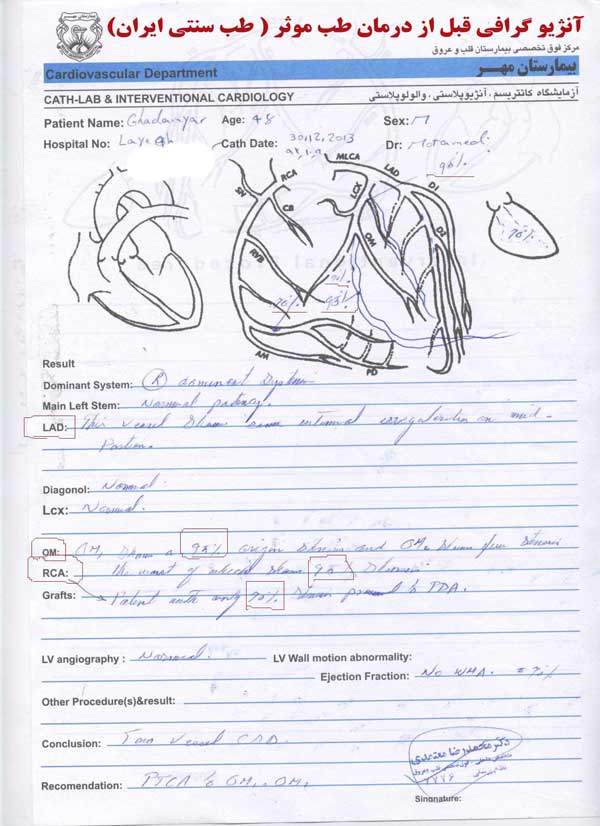 آنژیو گرافی قبل از درمان طب موثر ( طب سنتی ایران)
مرکز فوق تخصصی بیمارستان قلب و عروق
بیمارستان مهـر
Cardiovascular Department
CATH-LAB & INTERVENTIONAL CARDIOLOGY
آزمایشگاه کاتتریسم ، آنژیوپلاستی ، والولوپلاستی
Patient Name: Age: 48 Sex: M
Hospital No: Cath Date: 30,12,2013 Dr: Motamedi
RCA MLCA LAD D1
SN CB LCX OM D2
RVB
AM PD
Result
Dominant System: (R) dominant system
Main Left Stem: Normal patency.
LAD: This vessel shows some intimal irregularities on mid-
Portion.
Diagonol: Normal.
Lcx: Normal.
OM: OM1 shows a 95% origin stenosis and OM2 shows few stenosis
RCA: the worst of which shows 95% stenosis
Grafts: Patent with only 90% stenosis proximal to PDA.
LV angiography : Normal. LV Wall motion abnormality:
Ejection Fraction: No WMA.
Other Procedure(s)&result:
Conclusion: Two vessel CAD.
Recomendation: PTCA to OM1, OM2
دکتر محمدرضا معتمدی
Sinonature: